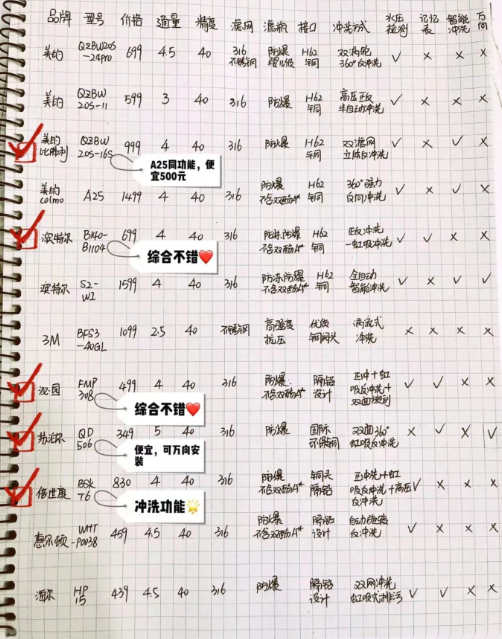 品牌 型号 价格 通量 精度 滤网 滤瓶 接口 冲洗方式 水压检测 记忆表 智能冲洗 万向
美的 QZBW20S-24pro 699 4.5 40 316不锈钢 防爆 H62专用 双涡轮360°反冲洗 ✓ × × ×
美的 QZBW20S-11 599 3 40 316 防爆 H62 高压正反半自动冲洗 ✓ × × ×
美的比佛利 QZBW20S-16S 999 4 40 316 防爆 H62 双滤网立体反冲洗 ✓ × ✓ ×
A25同功能,便宜500元
美的colmo A25 1499 4 40 316 防爆不含双酚A* H62 360°强力反向冲洗 ✓ × ✓ ×
滨特尔 B140-B1104 699 4 40 316 防冻防爆不含双酚A* H62 正反冲洗虹吸冲洗 ✓ ✓ × ×
综合不错❤️
滨特尔 S2-W1 1599 4 40 316 防冻,防爆不含双酚A* H62 全自动智能冲洗 ✓ × ✓ ✓
3M BFS3-40GL 1099 2.5 40 不锈钢 高强度抗压 优质铜阀头 涡流式冲洗 × × × ×
沁园 FMP308 499 4 40 316 防爆.不含双酚A* 隔铅设计 正冲+虹吸反冲洗+双面刮刷 ✓ ✓ × ×
综合不错❤️
QD506 349 5 40 316 防爆 国标 双面360°虹吸反冲洗 ✓ × × ✓
便宜,可万向安装
倍世 BSKT6 830 4 40 316 防爆不含双酚A* 铜头隔铅 正冲洗+虹吸反冲洗+高压反冲洗 ✓ ✓ × ×
冲洗功能🌟
惠而浦 WHTP0038 459 4.5 40 316 防爆不含双酚A* 隔铅设计 自动旋转反冲洗 ✓ × × ×
海尔 HP15 439 4.5 40 316 防爆 隔铅设计 双网冲洗虹吸式排污 ✓ ✓ × ×